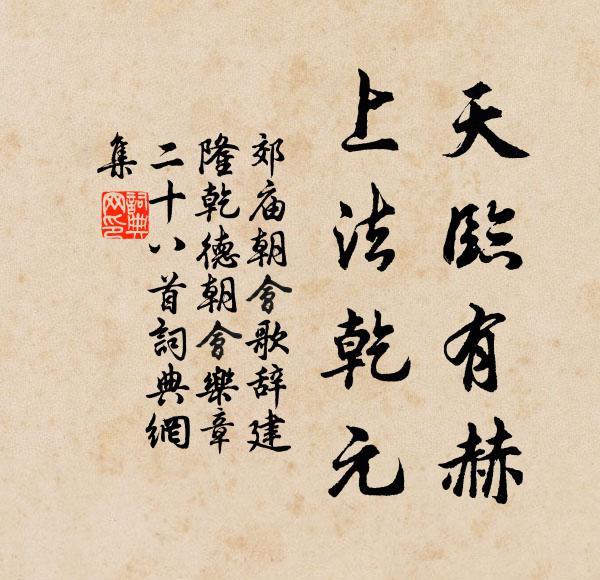 天臨有赫
上法乾元
郊庙朝會歌辞建
隆乾德朝會樂章
二十八首詞典網
集
詞典
网印